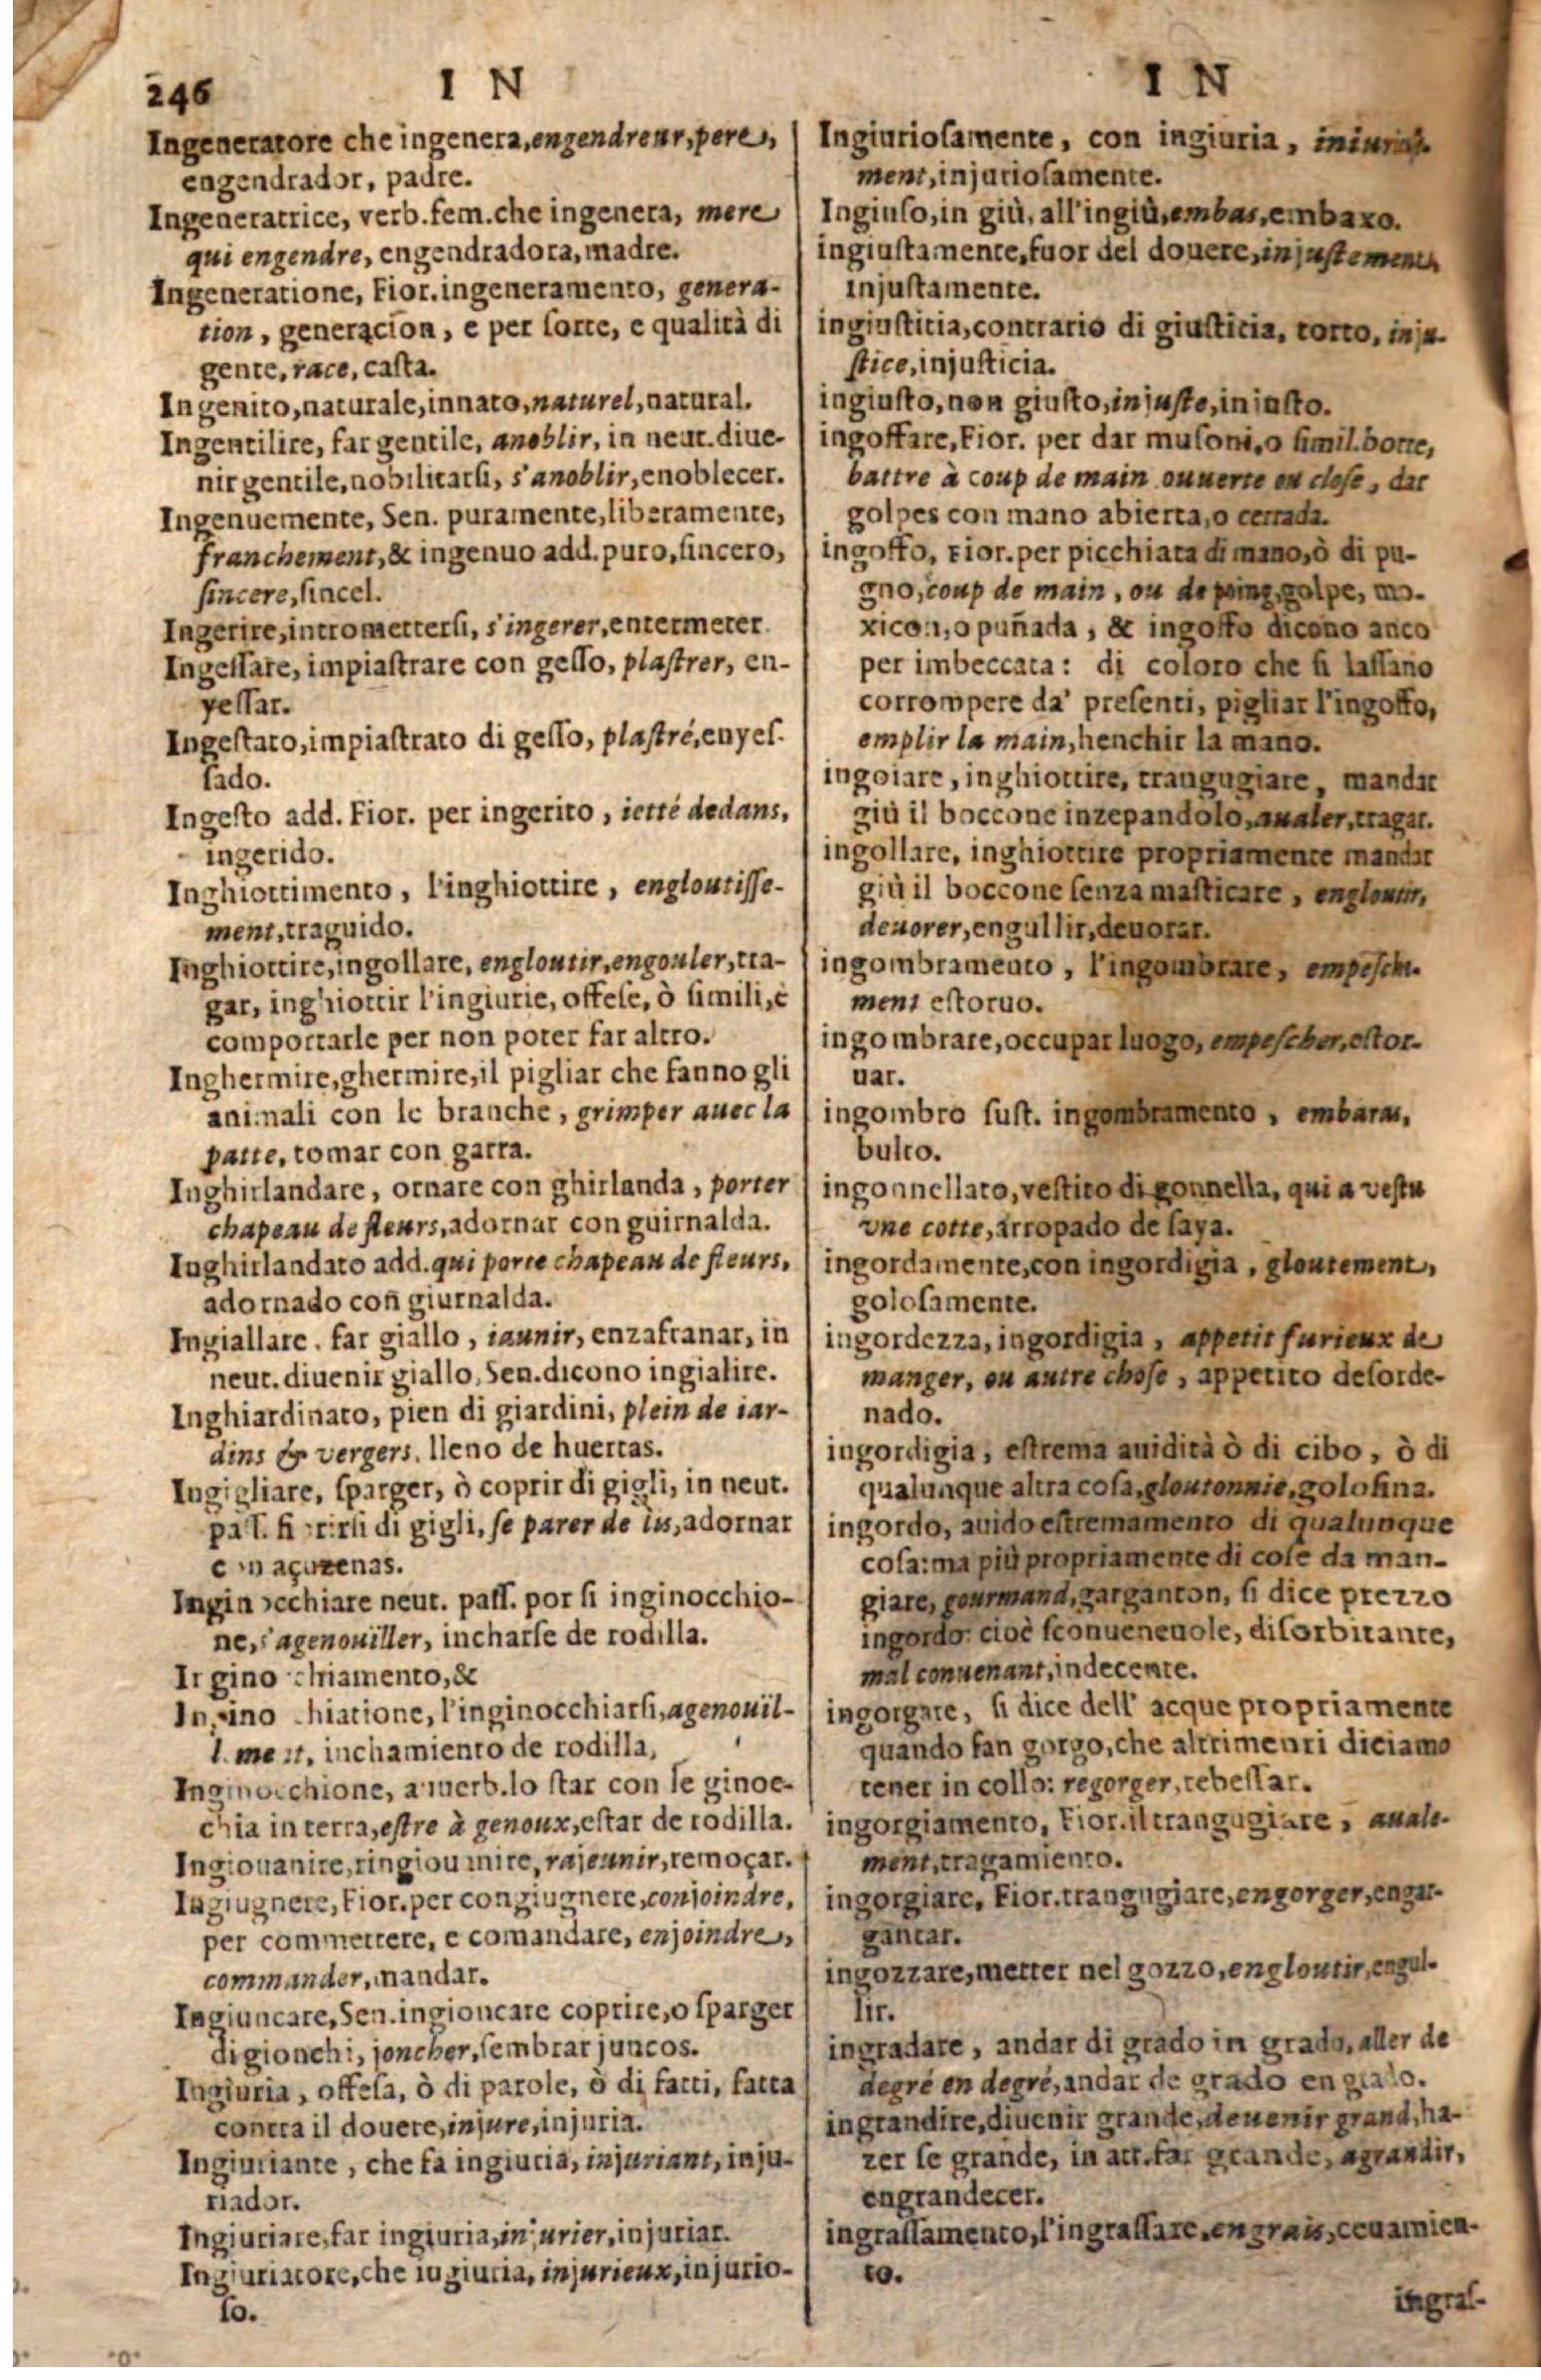 246
I N
Ingeneratore che ingenera, engendreur, pere,
engendrador, padre.
Ingeneratrice, verb. fem. che ingenera, mere
qui engendre, engendradora, madre.
Ingeneratione, Fior. ingeneramento, genera-
tion, generacion, e per ſorte, e qualità di
gente, race, caſta.
Ingenito, naturale, innato, naturel, natural.
Ingentilire, far gentile, anoblir, in neut. diue-
nir gentile, nobilitarſi, s'anoblir, enoblecer.
Ingenuemente, Sen. puramente, liberamente,
franchement, & ingenuo add. puro, ſincero,
ſincere, ſincel.
Ingerire, intrometterſi, s'ingerer, entermeter.
Ingeſſare, impiaſtrare con geſſo, plaſtrer, en-
yeſſar.
Ingeſtato, impiaſtrato di geſſo, plaſtré, enyeſ-
ſado.
Ingeſto add. Fior. per ingerito, ietté dedans,
ingerido.
Inghiottimento, l'inghiottire, engloutiſſe-
ment, traguido.
Inghiottire, ingollare, engloutir, engouler, tra-
gar, inghiottir l'ingiurie, offeſe, ò ſimili, è
comportarle per non poter far altro.
Inghermire, ghermire, il pigliar che fanno gli
animali con le branche, grimper auec la
patte, tomar con garra.
Inghirlandare, ornare con ghirlanda, porter
chapeau de fleurs, adornar con guirnalda.
Inghirlandato add. qui porte chapeau de fleurs,
adornado con̄ giurnalda.
Ingiallare. far giallo, iaunir, enzafranar, in
neut. diuenir giallo, Sen. dicono ingialire.
Inghiardinato, pien di giardini, plein de iar-
dins & vergers, lleno de huertas.
Ingigliare, ſparger, ò coprir di gigli, in neut.
paſſ. fiorirſi di gigli, ſe parer de lis, adornar
con açuzenas.
Inginocchiare neut. paſſ. por ſi inginocchio-
ne, s'agenouïller, incharſe de rodilla.
Inginocchiamento, &
Inginocchiatione, l'inginocchiarſi, agenouïl-
lement, inchamiento de rodilla,
Inginocchione, auuerb. lo ſtar con le ginoc-
chia in terra, eſtre à genoux, eſtar de rodilla.
Ingiouanire, ringiouinire, rajeunir, remoçar.
Ingiugnere, Fior. per congiugnere, conjoindre,
per commettere, e comandare, enjoindre,
commander, mandar.
Ingiuncare, Sen. ingioncare coprire, o ſparger
di gionchi, joncher, ſembrar juncos.
Ingiuria, offeſa, ò di parole, ò di fatti, fatta
contra il douere, injure, injuria.
Ingiuriante, che fa ingiuria, injuriant, inju-
riador.
Ingiuriare, far ingiuria, injurier, injuriar.
Ingiuriatore, che iugiuria, injurieux, injurio-
ſo.
I N
Ingiurioſamente, con ingiuria, iniurieuſ-
ment, injurioſamente.
Ingiuſo, in giù, all'ingiù, embas, embaxo.
ingiuſtamente, fuor del douere, injuſtement,
injuſtamente.
ingiuſtitia, contrario di giuſtitia, torto, inju-
ſtice, injuſticia.
ingiuſto, non giuſto, injuſte, iniuſto.
ingoffare, Fior. per dar muſoni, o ſimil. botte,
battre à coup de main ouuerte ou cloſe, dar
golpes con mano abierta, o cerrada.
ingoffo, Fior. per picchiata di mano, ò di pu-
gno, coup de main, ou de poing, golpe, mo-
xicon, o puñada, & ingoffo dicono anco
per imbeccata: di coloro che ſi laſſano
corrompere da' preſenti, pigliar l'ingoffo,
emplir la main, henchir la mano.
ingoiare, inghiottire, trangugiare, mandar
giù il boccone inzepandolo, aualer, tragar.
ingollare, inghiottire propriamente mandar
giù il boccone ſenza maſticare, engloutir,
deuorer, engullir, deuorar.
ingombramento, l'ingombrare, empeſche-
ment eſtoruo.
ingombrare, occupar luogo, empeſcher, eſtor-
uar.
ingombro ſuſt. ingombramento, embaras,
bulto.
ingonnellato, veſtito di gonnella, qui a veſtu
vne cotte, arropado de ſaya.
ingordamente, con ingordigia, gloutement,
goloſamente.
ingordezza, ingordigia, appetit furieux de
manger, ou autre choſe, appetito deſorde-
nado.
ingordigia, eſtrema auidità ò di cibo, ò di
qualunque altra coſa, gloutonnie, goloſina.
ingordo, auido eſtremamento di qualunque
coſa: ma più propriamente di coſe da man-
giare, gourmand, garganton, ſi dice prezzo
ingordo: cioè ſconueneuole, diſorbitante,
mal conuenant, indecente.
ingorgare, ſi dice dell' acque propriamente
quando fan gorgo, che altrimenti diciamo
tener in collo: regorger, rebeſſar.
ingorgiamento, Fior. il trangugiare, auale-
ment, tragamiento.
ingorgiare, Fior. trangugiare, engorger, engar-
gantar.
ingozzare, metter nel gozzo, engloutir, engul-
lir.
ingradare, andar di grado in grado, aller de
degré en degré, andar de grado en grado.
ingrandire, diuenir grande, deuenir grand, ha-
zer ſe grande, in att. far grande, agrandir,
engrandecer.
ingraſſamento, l'ingraſſare, engrais, ceuamien-
to.
ingraſ-